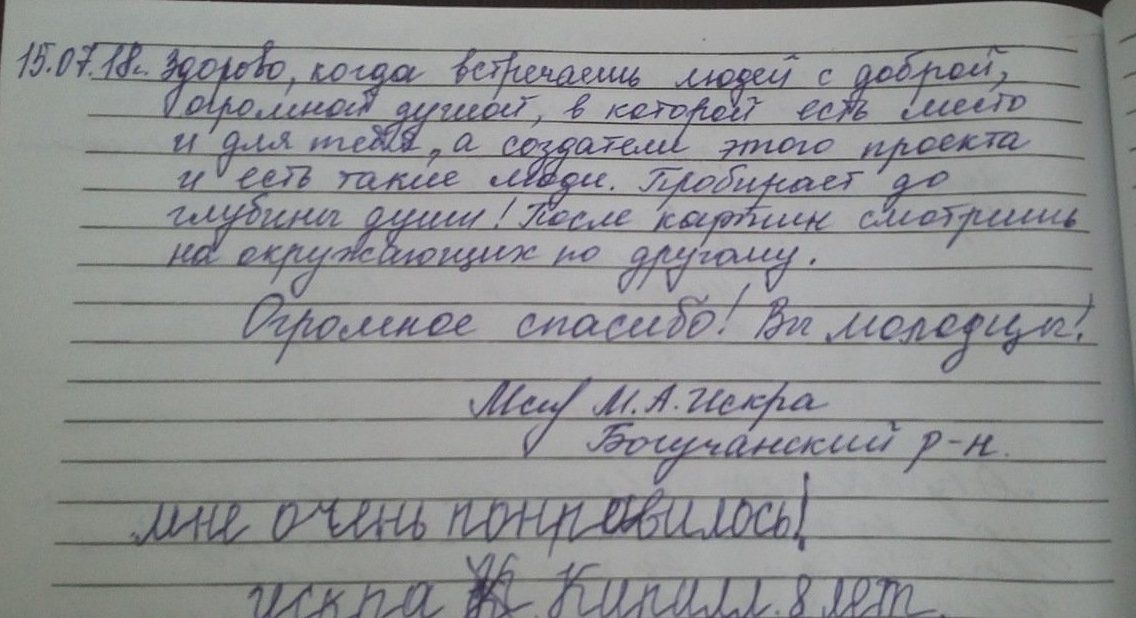 15.07.18г. Здорово, когда встречаешь людей с доброй,
огромной душой, в которой есть место
и для тебя, а создатели этого проекта
и есть такие люди. Пробирает до
глубины души! После картин смотришь
на окружающих по другому.
Огромное спасибо! Вы молодцы!
М.А. Искра
Богучанский р-н.
мне очень понравилось!
искра Кирилл. 8 лет.